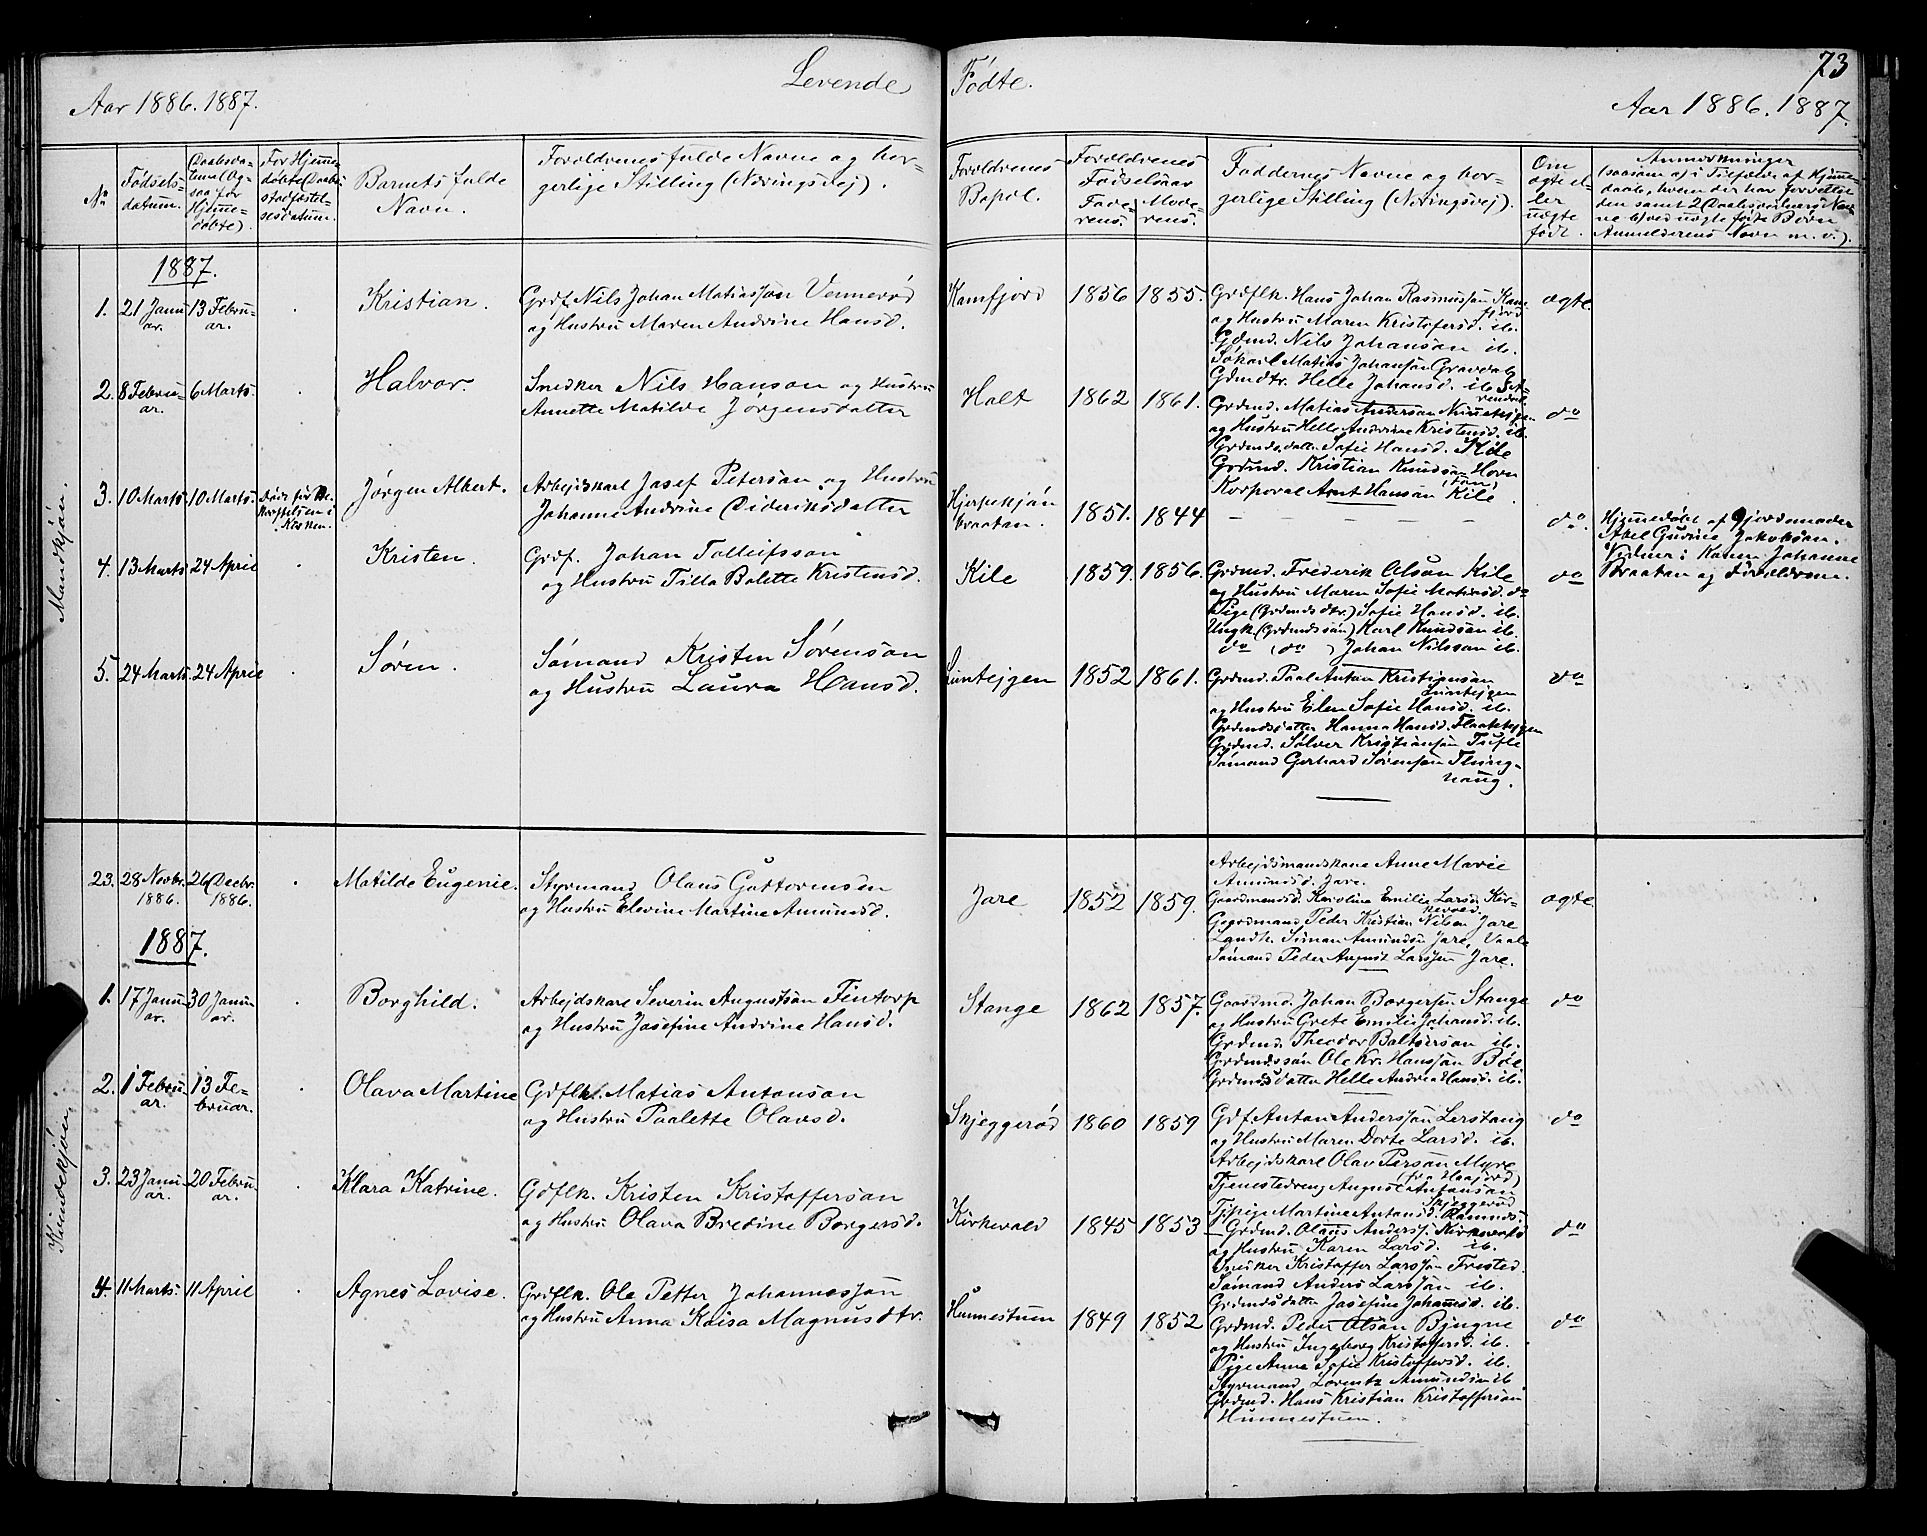 73
Levende Fødte.
Aar 1886. 1887.
Aar 1886. 1887.
No
Fødsels-
datum.
Daabsda-
tum (Og-
saa for
Hjemme-
døbte).
For Hjemme-
døbte Daabs-
stadfæstel-
sesdatum.
Barnets fulde
Navn.
Forældrenes fulde Navne og bor-
gerlige Stilling (Næringsvej).
Forældrenes
Bopæl.
Forældrenes
Fødselsaar
Fade-
rens.
Mode-
rens.
Faddernes Navne og bor-
gerlige Stilling (Næringsvej).
Om
ægte el-
ler
uægte
født.
Anmærkninger
(saasom a) i Tilfælde af Hjemme-
daab, hvem der har forrettet
den samt 2 Daabsvidners Nav-
ne b) ved uægte fødte Børn
Anmelderens Navn m. v.).
Mandkjøn.
1887.
1. 21 Janu-
ar. 13 Febru-
ar. Kristian. Grdf. Nils Johan Matiassøn Vennerød
og Hustru Maren Andrine Hansd.
Kamfjord 1856 1855.
Grdflk. Hans Johan Rasmussøn Kam-
fjord
og Hustru Maren Kristofersd. ib.
Gdmd. Nils Johansøn ib.
Søkarl Matias Johansøn Gravdal
Gdmdtr. Helle Johansd. ib
ægte
2. 8 Febru-
ar. 6 Marts. Halvor. Snedker Nils Hanson og Hustru
Annette Matilde Jørgensdatter
Holt 1862 1861.
Grdmd. Matias Anderson
og Hustru Helle Andrine Kristensd. ib.
Grdmdsdatt. Sofie Hansd. Kile
Grdmd. Kristian Knudsøn Horn
Korporal Arnt Hansøn Kile
do
3. 10 Marts 10 Marts. Jørgen Albert. Arbejdskarl Josef Petersøn og Hustru
Johanne Andrine Dideriksdatter
Død før Be-
kræftelsen i
Kirken.
Hjerpekjøn
braatan. 1851. 1844
do.
Hjemmedøbt af Gjordemoder
Abel Gudine Jakobsøn.
Vidner: Konen Johanne
Braatan og Forældrene.
4. 13 Marts 24 April Kristen. Grdf. Johan Tolleifsson
og Hustru Tilla Bolette Kristensd.
Kile 1859. 1856.
Grdmd. Frederik Olsøn Kile
og Hustru Maren Sofie Matiasd. do
Pige (Grdmdsdtr.) Sofie Hansd. ib.
Ungk. (Grdmdssøn) Karl Knudsøn ib.
do (do) Johan Nilsson ib.
do
5. 24 Marts 24 April Søren. Sømand Kristen Sørensøn
og Hustru Laura Hansd.
Linntejgen 1852 1861.
Grdmd. Paal Anton Kristiansøn
Linntejgen
og Hustru Elen Sofie Hansd. ib.
Grdmdsdatter Hanna Hansd. Flaatetejgen
Grdmd. Sølver Kristiansøn Tufte
Sømand Gerhard Sørensøn Thing-
haug.
do
Kvindekjøn.
23. 28 Novbr.
1886. 26 Decbr.
1886. Matilde Eugenie. Styrmand Olaus Guttormsen
og Hustru Elevine Martine Amundsd.
Jare 1852 1859.
Arbejdsmandskone Anne Marie
Amundsd. Jare.
Gaardmandsd. Karoline Emilie Larsd. Kir-
kevold.
Gaardmand Peder Kristian Nilsen Jare
Landh. Simon Amundsø Jare, Vaale
Sømand Peder August Larssen Jare.
ægte
1887.
1. 17 Janu-
ar. 30 Janu-
ar. Borghild. Arbejdskarl Severin Augustsøn Fintorp
og Hustru Josefine Andrine Hansd.
Stange 1862 1857.
Gaardmd. Johan Borgersen Stange
og Hustru Grete Emilie Johansd. ib.
Grdmd. Theodor Baltserson ib.
Grdmdssøn Ole Kr. Hanssøn Bøe
Grdmdsdatter Helle Andrea Hansd. ib.
do
2. 1 Febru-
ar. 13 Fe-
bruar. Olava Martine Gdflk. Matias Antonson
og Hustru Paalette Olavsd.
Skjeggerød 1860 1859
Gdf. Anton Anderssøn Lerstang
og Hustru Maren Dorte Larsd. ib.
Arbejdskarl Olav Persøn Myre
Tjenestedreng August Antonsøn
Skjeggerød
Tjpige Martine Antonsd.
do
3. 23 Janu-
ar. 20 Febru-
ar. Klara Katrine. Gdflk. Kristen Kristoffersøn
og Hustru Olava Bredine Borgersd.
Kirkevold 1845 1853
Grdmd. Olaus Anderss. Kirkevold
og Hustru Karen Larsd. ib.
Snedker Kristoffer Larssøn Fristed.
Sømand Anders Larssøn ib.
Grdmdsdatter Josefine Johannsd. ib.
do
4. 11 Marts. 11 April Agnes Lovise. Grdflk. Ole Petter Johannessøn
og Hustru Anna Kaisa Magnusdtr.
Hunnestum 1849 1852
Grdmd. Peder Olsøn Bjugne
og Hustru Ingeborg Kristoffersd. ib.
Pige Anna Sofie Kristoffersd. ib.
Styrmand Lorentz Amundsøn ib
Grdmd. Hans Kristian Kristoffersøn
Hunnestuem.
do